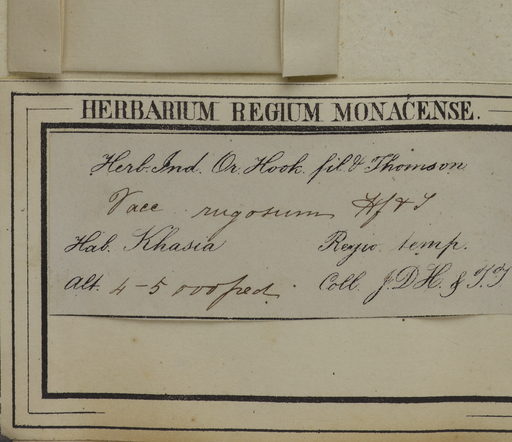 HERBARIUM REGIUM MONACENSE.
Herb. Ind. Or. Hook. fil. & Thomson
Vacc rugosum Hf & T
Hab. Khasia Regio temp.
Alt. 4-5 000 ped. Coll. J.D.H. & T.T